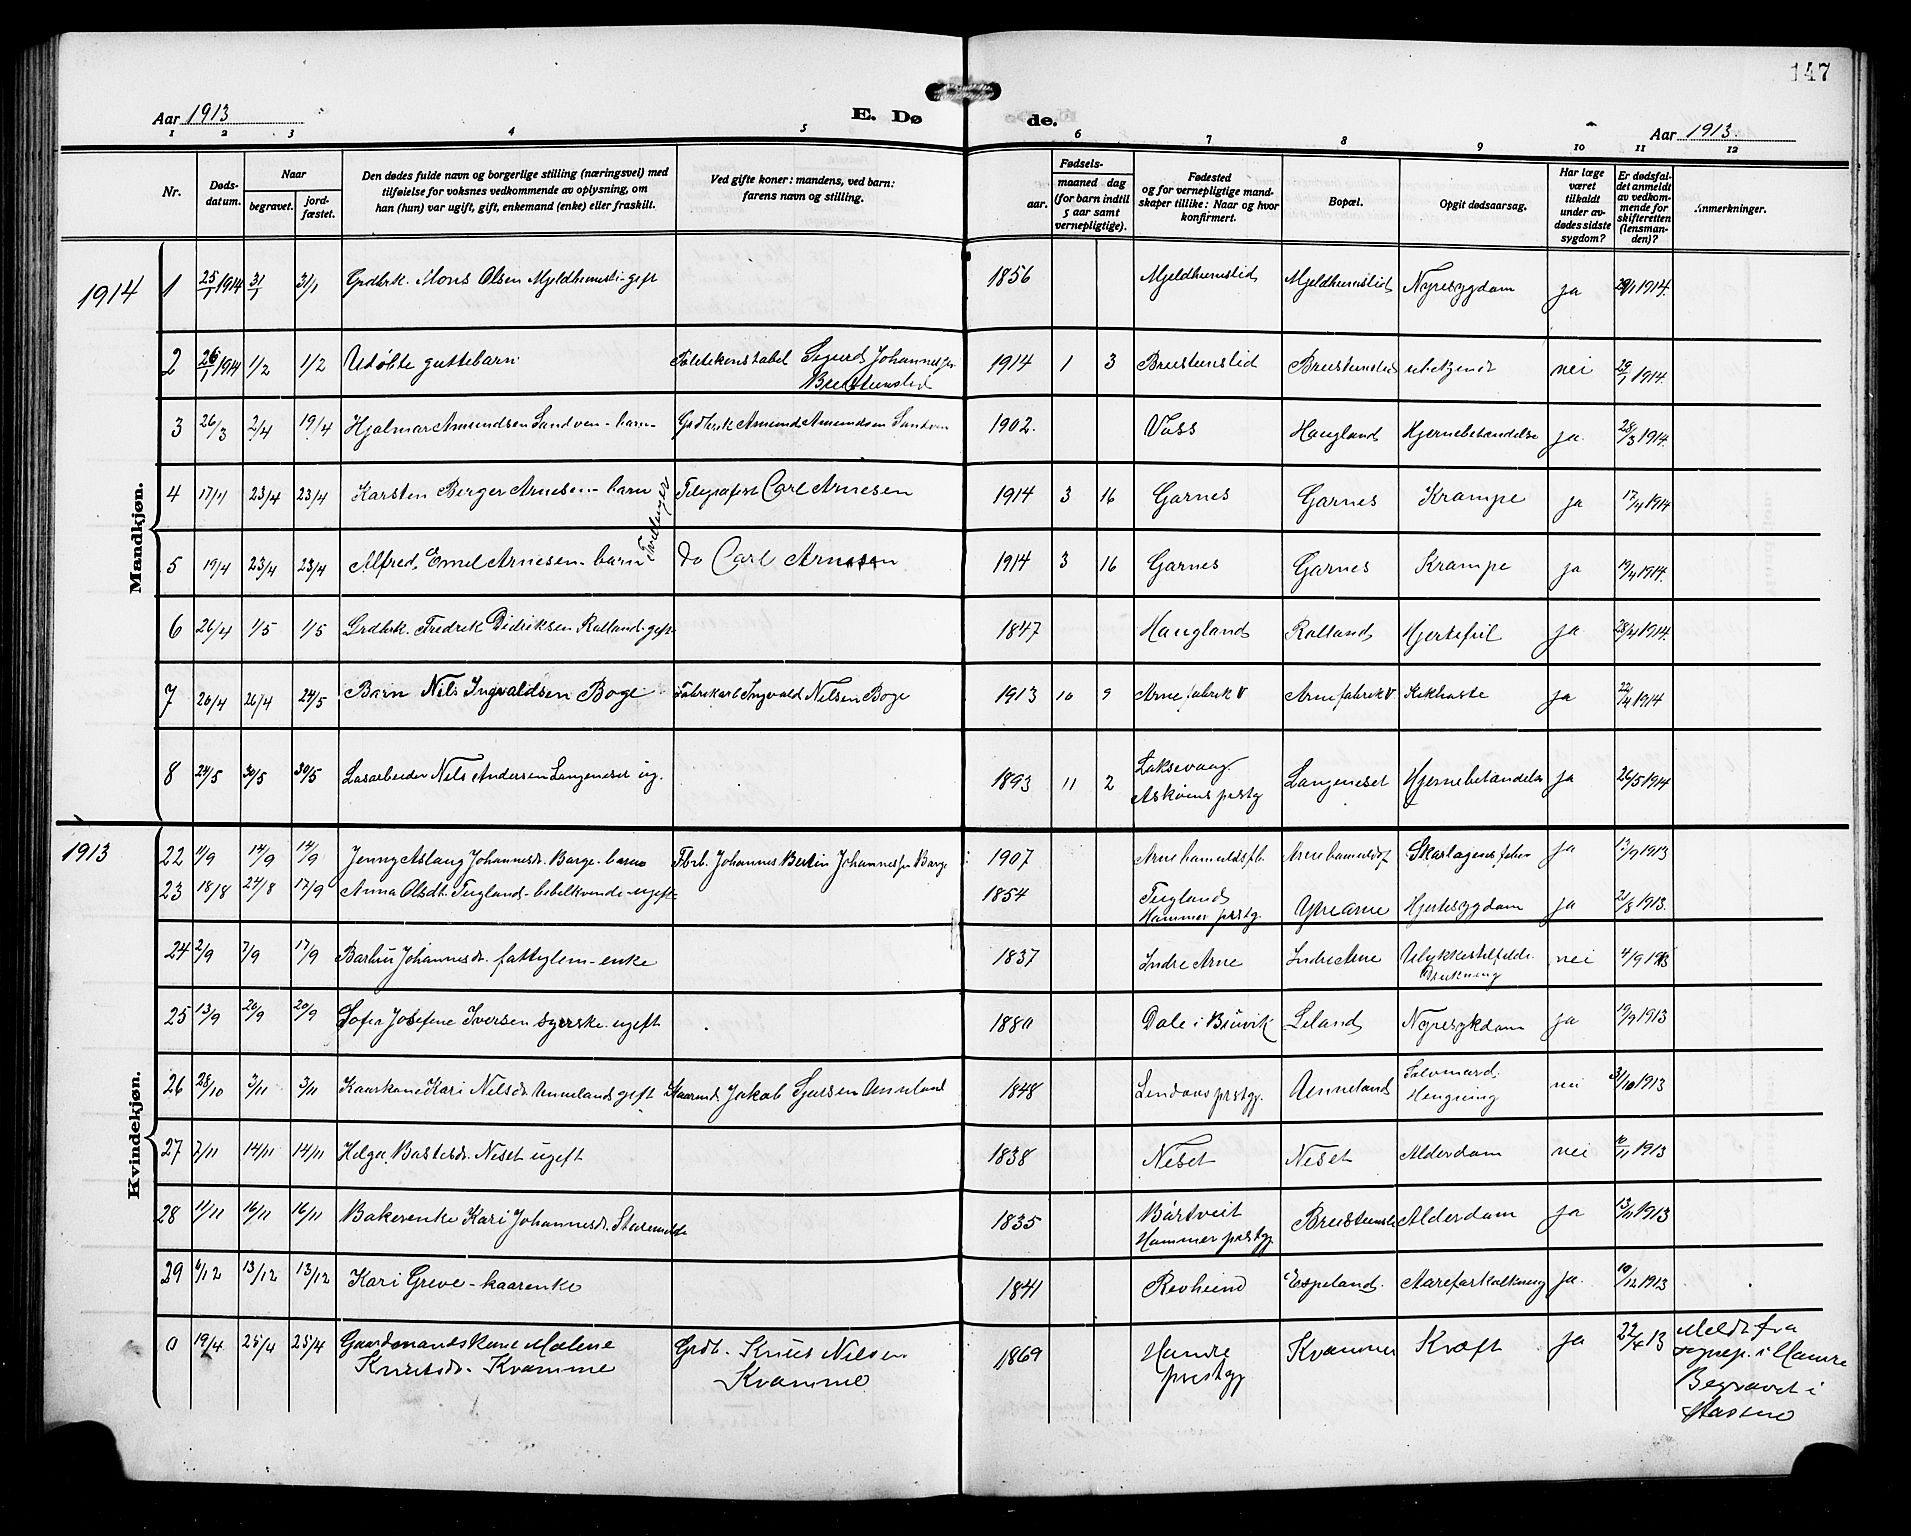 147
Aar 1913
E. Dø
de.
Aar 1913.
1 2 3 4 5 6 7 8 9 10 11 12
Nr.
Døds-
datum.
Naar
begravet.
jord-
fæstet.
Den dødes fulde navn og borgerlige stilling (næringsvei) med
tilføielse for voksnes vedkommende av oplysning, om
han (hun) var ugift, gift, enkemand (enke) eller fraskilt.
Ved gifte koner: mandens, ved barn:
farens navn og stilling.
Fødsels-
aar.
maaned dag
(for barn indtil
5 aar samt
vernepligtige).
Fødested
og for vernepligtige mand-
skaper tillike: Naar og hvor
konfirmert.
Bopæl.
Opgit dødsaarsag.
Har læge
været
tilkaldt
under av-
dødes sidste
sygdom?
Er dødsfal-
det anmeldt
av vedkom-
mende for
skifteretten
(lensman-
den)?
Anmerkninger.
1914
Mandkjøn.
1 25/1 1914 31/1 31/1 Grdbrk. Mons Olsen Mjeldheimsli-gift 1856 Mjeldheimslid Mjeldheimslid Nyresygdom ja 29/1 1914.
2 26/1 1914 1/2 1/2 Udøbte guttebarn Politikonstabel Sigurd Johannessen 1914 1 3 Breistenslid Breistenslid ubekjendt nei 29/1 1914.
Breistenslid
3 26/3 2/4 19/4 Hjalmar Amundsen Sandven-barn- Grdbrk Amund Amundsen Sandven 1902. Voss Haugland Hjernebetændelse ja. 28/3 1914.
4 17/4 23/4 23/4 Karsten Berger Arnesen-barn Telegrafist Carl Arnesen 1914 3 16 Garnes Garnes Krampe ja 17/4 1914
Tvillinger
5 19/4 23/4 23/4 Alfred Emel Arnesen-barn do Carl Arnesen 1914 3 16 Garnes Garnes Krampe ja 19/4 1914.
6 26/4 1/5 1/5 Grdbrk. Fredrik Didriksen Rolland-gift 1847 Haugland Rolland Hjertefeil ja 28/4 1914.
7 20/4 26/4 24/5 Barn Nils Ingvaldsen Boge Fabrikarb Ingvald Nilsen Boge 1913 10 9 Arne fabrik Arne fabrik Kikhoste ja 22/4 1914
8 24/5 30/5 30/5 Løsarbeider Nils Andersen Langeneset ug. 1893 11 2 Laksevaag Langeneset Hjernebetændelse ja 26/5 1914
Askøens prstg
1913
Kvindekjøn.
22 9/9 14/9 14/9 Jenny Aslaug Johannesdr. Borge-barn Fbrb. Johannes Bertin Johannessen Borge 1907 Skarlagensfeber ja 13/9 1913
23 18/8 24/8 17/9 Anna Olsdt. Tugland ugift 1854 Tugland Ytre Arne Hjertesygdom ja 21/8 1913.
Hammer prstg.
24 2/9 7/9 17/9 Johannesdr. fattiglem-enke 1837 Indre Arne Indre Arne Ulykkestilfælde. nei 4/9 1913
Drukning
25 13/9 20/9 20/9 Sofie Josefine Iversen syerske-ugift 1880 Dale i Bruvik Leland Nyresykdom ja 19/9 1913
26 28/10 3/11 3/11 Kaarkone Kari Nilsdr. Unneland gift Kaarmd. Jakob Sjursen Unneland 1848 Lindaas prstgj. Unneland Selvmord. nei 31/10 1913
Hengning
27 7/11 14/11 14/11 Helga Bastesdr. Neset ugift 1838 Neset Neset Alderdom nei 10/11 1913
28 11/11 16/11 16/11 Bakerenke Kari Johannesdr. Storemelde 1835 Børtveit Breistensli Alderdom ja 13/11 1913
Hammer prstgj.
29 6/12 13/12 13/12 Kari Greve-kaarenke 1841 Revheim Espeland. Aareforkalkning ja. 10/12 1913
0 19/4 25/4 25/4 Gaardmandskone Malene Grdb. Knut Nilsen 1869 Hamre Kvamme Kræft ja 22/4 13 Meldt fra
Knutsdr. Kvamme Kvamme prestgj sognep. i Hamre
Begravet i